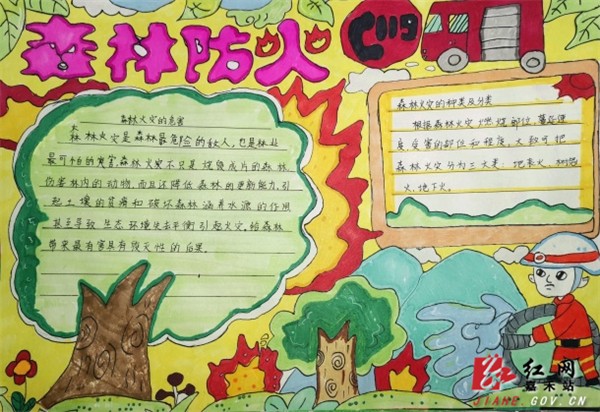 森林防火
119
森林火灾的危害
森林火灾是森林最危险的敌人,也是林业
最可怕的灾害,森林火灾不只是烧毁成片的森林
伤害林内的动物,而且还降低森林的更新能力,引
起土壤的贫瘠和破坏森林涵养水源的作用
甚至导致生态环境失去平衡引起火灾,给森林
带来最有害具有毁灭性的后果。
森林火灾的种类及分类
根据森林火灾燃烧部位、蔓延速
度,受害的部位和程度,大致可把
森林火灾分为三大类:地表火、树冠
火、地下火。
红网
嘉禾站
JIAHE.GOV.CN